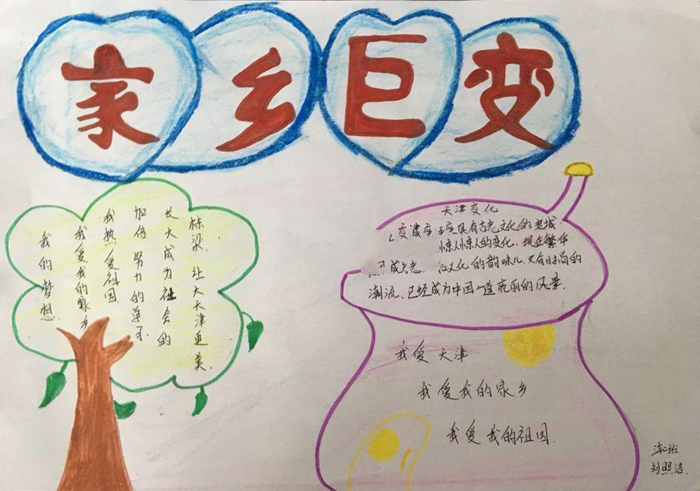 家乡巨变
我的梦想
我爱我的家乡
我热爱祖国
加倍努力的学习
长大成为社会的
栋梁,让大天津更美.
天津变化
具有古老文化的老城
惊人惊人的变化.现在繁华
文化的韵味儿又有时尚的
潮流.已经成为中国一道亮丽的风景.
我爱天津
我爱我的家乡
我爱我的祖国.
班
刘照洁.